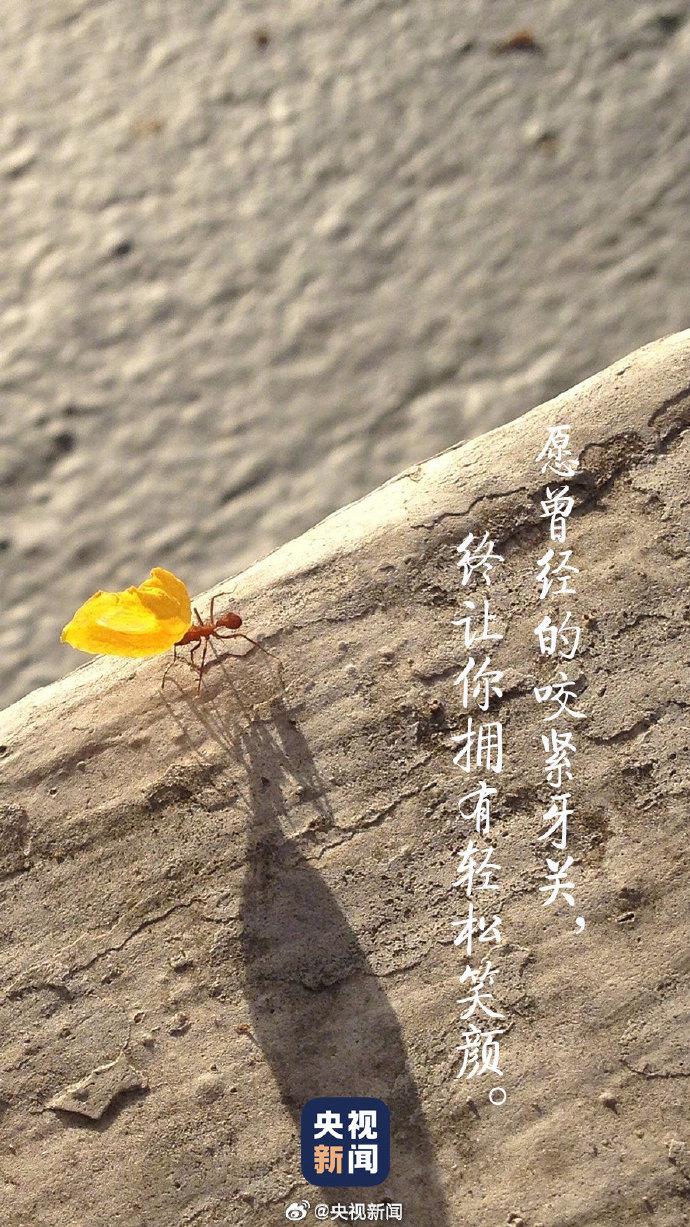 愿曾经的咬紧牙关，
终让你拥有轻松笑颜。
央视
新闻
@央视新闻